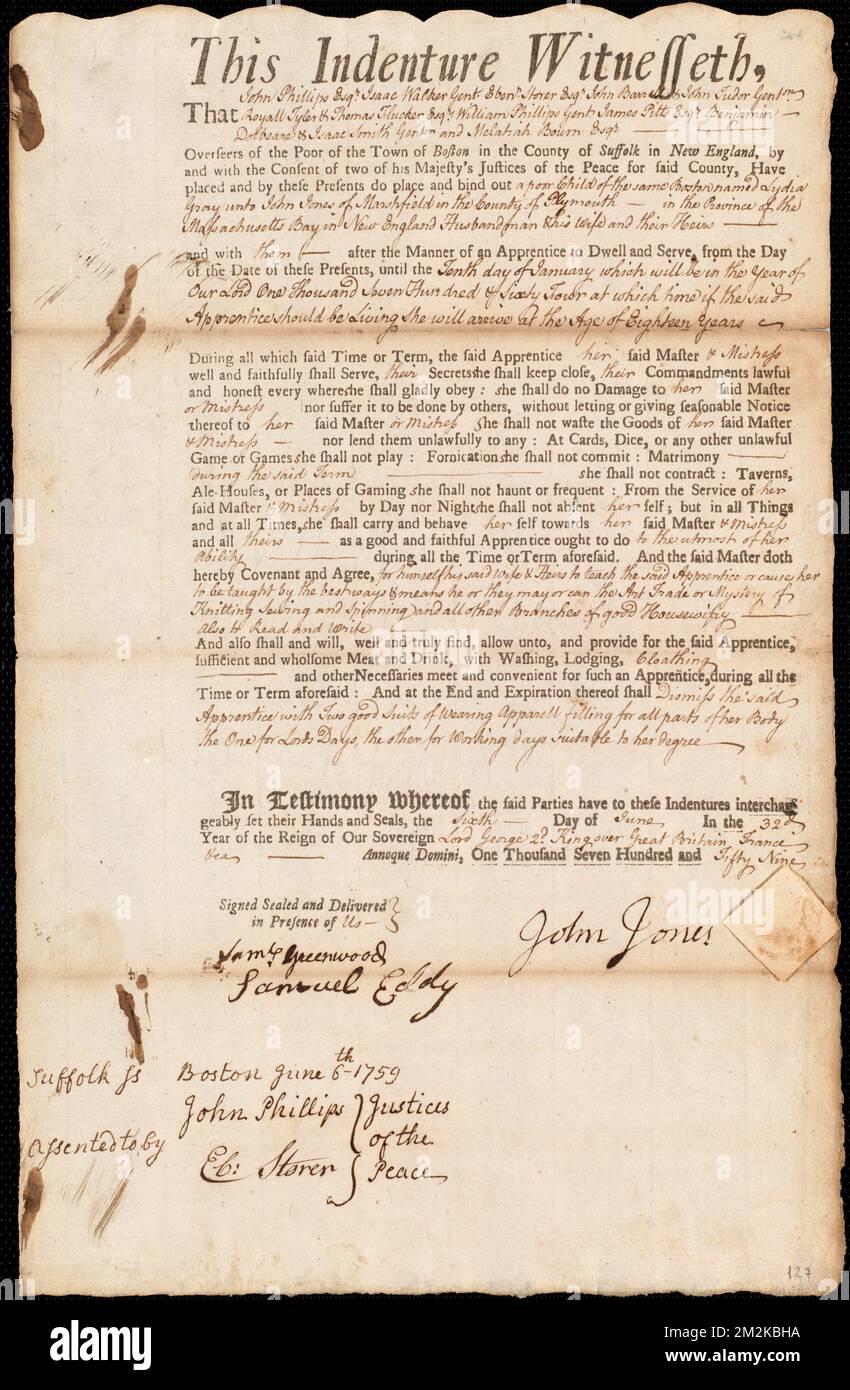 This Indenture Witnesseth,
John Phillips Esqr. Isaac Walker Gent. Ebenr. Storer Esqr. John & John Tudor Gentmn
That Royall Tyler & Thomas Flucker Esqrs. William Phillips Gent James Pitts Esqr. Benjamin
Dolbeare & Isaac Smith Gentmn and Melatiah Bourn Esqr.
Overseers of the Poor of the Town of Boston in the County of Suffolk in New England, by
and with the Consent of two of his Majesty's Justices of the Peace for said County, Have
placed and by these Presents do place and bind out a poor Child of the same Boston named Lydia
Gray unto John Jones of Marshfield in the County of Plymouth — in the Province of the
Massachusetts Bay in New England Husbandman & his Wife and their Heirs
and with them — after the Manner of an Apprentice to Dwell and Serve, from the Day
of the Date of these Presents, until the Tenth day of January which will be in the Year of
Our Lord One Thousand Seven Hundred & Sixty Four at which time if the said
Apprentice should be Living she will arrive at the Age of Eighteen Years
During all which said Time or Term, the said Apprentice her said Master & Mistress
well and faithfully shall Serve, their Secrets she shall keep close, their Commandments lawful
and honest every where she shall gladly obey: she shall do no Damage to her said Master
or Mistress nor suffer it to be done by others, without letting or giving seasonable Notice
thereof to her said Master or Mistress she shall not waste the Goods of her said Master
& Mistress — nor lend them unlawfully to any: At Cards, Dice, or any other unlawful
Game or Games she shall not play: Fornication she shall not commit: Matrimony —
during the said Term — she shall not contract: Taverns,
Ale-Houses, or Places of Gaming she shall not haunt or frequent: From the Service of her
said Master & Mistress by Day nor Night she shall not absent her self; but in all Things
and at all Times, she shall carry and behave her self towards her said Master & Mistress
and all theirs — as a good and faithful Apprentice ought to do to the utmost of her
Ability — during all the Time or Term aforesaid. And the said Master doth
hereby Covenant and Agree, for himself his said Wife & Heirs to teach the said Apprentice or cause her
to be taught by the best ways & means he or they may or can the Art Trade or Mystery of
Knitting Sewing and Spinning and all other Branches of good Housewifry
Also to Read and Write
And also shall and will, well and truly find, allow unto, and provide for the said Apprentice,
sufficient and wholsome Meat and Drink, with Washing, Lodging, Cloathing
— and other Necessaries meet and convenient for such an Apprentice, during all the
Time or Term aforesaid: And at the End and Expiration thereof shall Dismiss the said
Apprentice with Two good Suits of Wearing Apparell fitting for all parts of her Body
the One for Lords Days, the other for Working days Suitable to her degree
In Testimony Whereof, the said Parties have to these Indentures interchan-
geably set their Hands and Seals, the Sixth — Day of June In the 32d
Year of the Reign of Our Sovereign Lord George 2d. King over Great Britain, France
&ca — Annoque Domini, One Thousand Seven Hundred and Fifty Nine
Signed Sealed and Delivered
in Presence of Us —
John Jones
Saml Greenwood
Samuel Eddy
Suffolk ss Boston June 6th 1759
John Phillips Justices
of the
Assented to by
Eb: Storer Peace
127
alamy
Image ID: 2M2KBHA
www.alamy.com